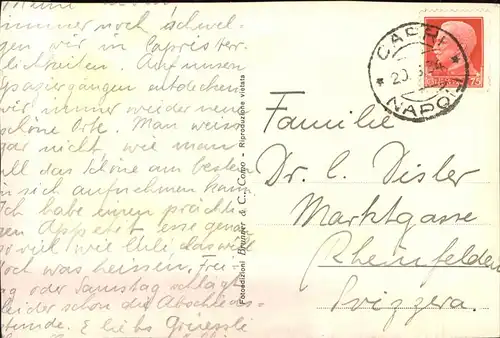 immer noch schwel-
gen wir in Capreister-
lichkeiten. Auf unsern
Spaziergängen entdecken
wir immer wieder neue
schöne Orte. Man weiss
gar nicht, wie man
all das Schöne am besten
in sich aufnehmen kann.
Ich habe einen prächti-
gen Appetit, esse genau
so viel wie Ehli das will
doch was heissen. Frei-
tag oder Samstag schlägt
leider schon die Abschieds-
stunde. E liebs Grüessli
Fotoedizioni Brunner & C., Como - Riproduzione vietata
CAPRI
NAPOLI
Familie
Dr. C. Disler
Marktgasse
Rheinfelden
Svizzera.